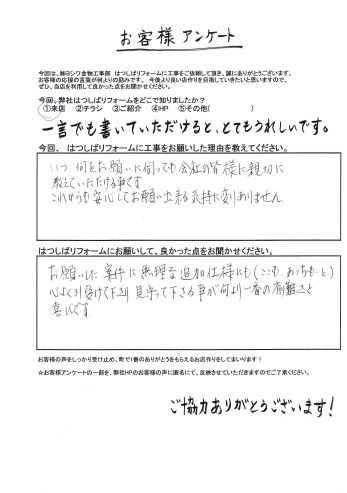 お客様アンケート
今回は、㈱ヨシワ金物工事部 はつしばリフォームに工事をご依頼して頂き、誠にありがとうございます。
お客様の応援の言葉が何よりの励みです。 今後より良い店作りを目指していきたいと思いますので、
ぜひ、当店を利用して良かった点をお聞かせください。
今回、弊社はつしばリフォームをどこで知りましたか?
①来店 ②チラシ ③ご紹介 ④HP ⑤その他( )
一言でも書いていただけると、とてもうれしいです。
今回、 はつしばリフォームに工事をお願いした理由を教えてください。
いつ、何をお願いに伺っても会社の皆様に親切に
教えていただける事です
これからも安心してお願い出来る気持に変りありません。
はつしばリフォームにお願いして、良かった点をお聞かせください。
お願いした案件に無理な追加仕様にも(ここも、あっちも、と)
心よく引受けて下さり 見守って下さる事が何より一番の有難さと
喜びです。
お客様の声をしっかり受け止め、町で1番のありがとうをもらえるお店作りをしてまいります!
☆お客様アンケートの一部を、弊社HPのお客様の声に匿名にて、反映させていただきますのでご了承ください。
ご協力ありがとうございます!